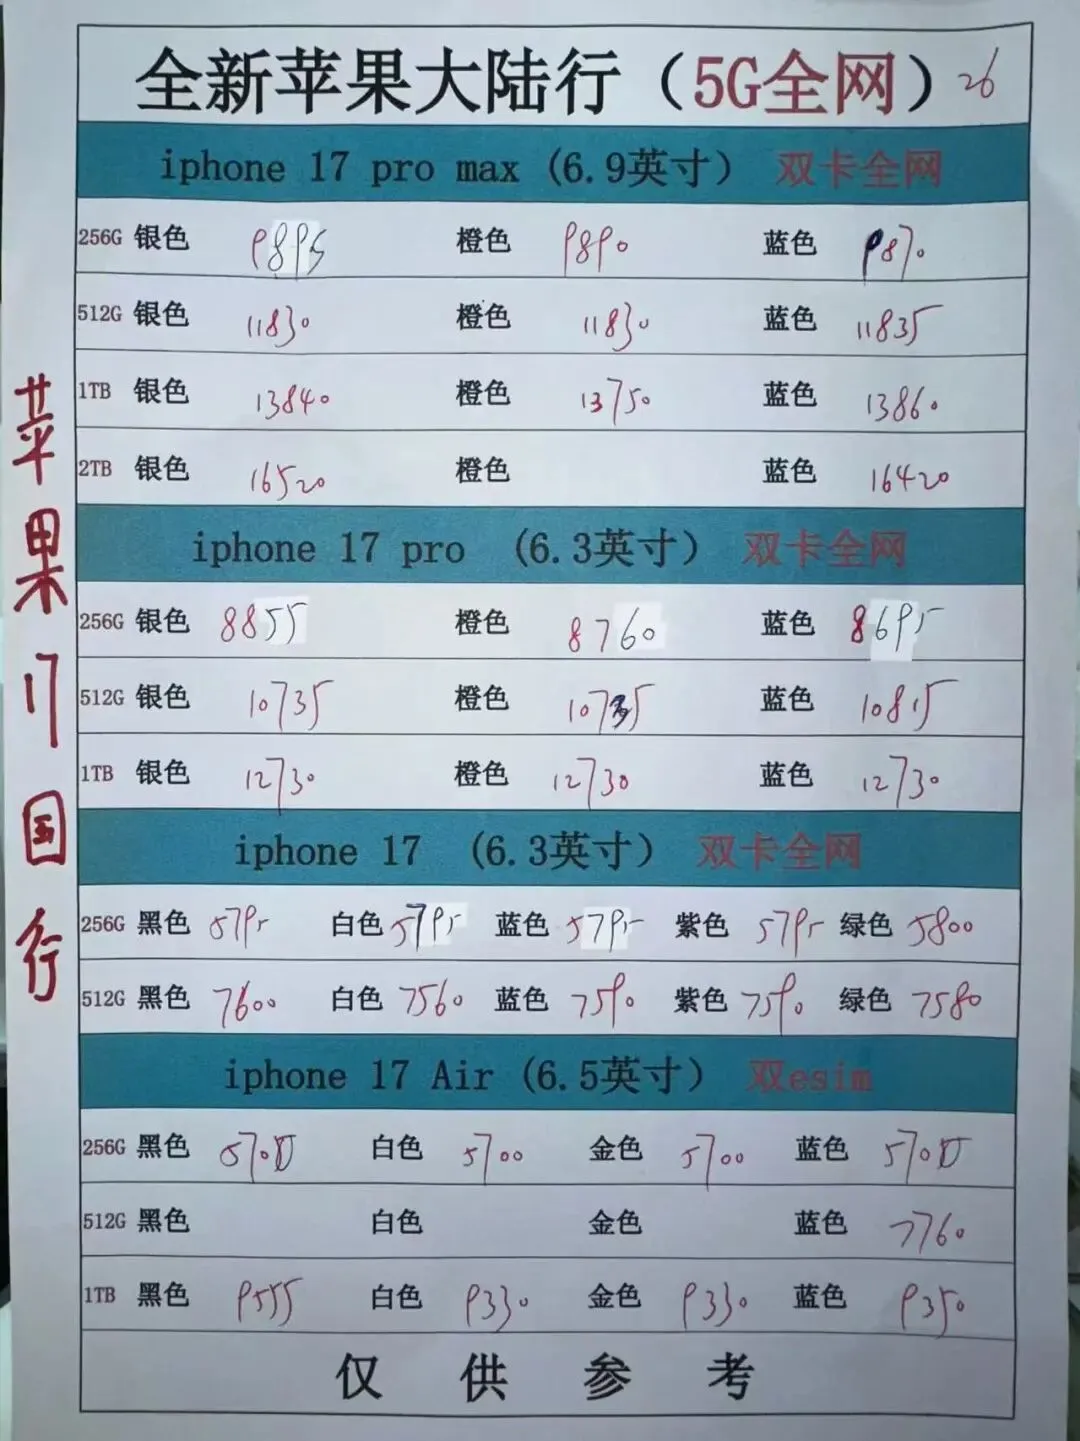 全新苹果大陆行（5G全网）26
iphone 17 pro max (6.9英寸） 双卡全网
256G 银色 9895 橙色 9890 蓝色 9870
512G 银色 11830 橙色 11830 蓝色 11835
1TB 银色 13840 橙色 13750 蓝色 13860
2TB 银色 16520 橙色 蓝色 16420
iphone 17 pro (6.3英寸） 双卡全网
256G 银色 8855 橙色 8760 蓝色 8695
512G 银色 10735 橙色 蓝色 10815
1TB 银色 12730 橙色 12730 蓝色 12730
iphone 17 (6.3英寸） 双卡全网
256G 黑色 5795 白色 5795 蓝色 5795 紫色 5795 绿色 5800
512G 黑色 7600 白色 7560 蓝色 7590 紫色 7590 绿色 7580
iphone 17 Air (6.5英寸） 双esim
256G 黑色 5700 白色 5700 金色 5700 蓝色 5700
512G 黑色 白色 金色 蓝色 7760
1TB 黑色 9555 白色 9330 金色 9330 蓝色 9350
仅供参考
苹果17国行